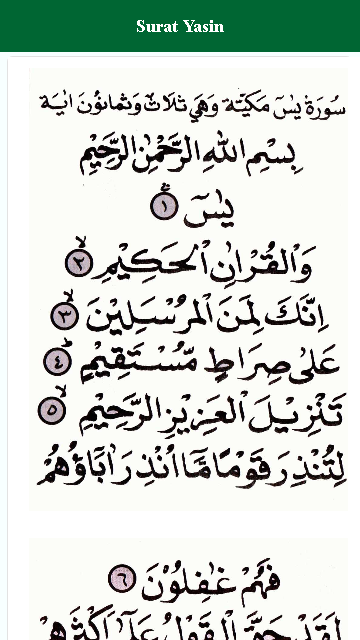 Surat Yasin
سُوْرَةُ يٰسٓ مَكِّيَّةٌ وَهِيَ ثَلَاثٌ وَثَمَانُوْنَ اٰيَةً
بِسْمِ اللهِ الرَّحْمٰنِ الرَّحِيْمِ
يٰسٓ ۚ ١
وَالْقُرْاٰنِ الْحَكِيْمِ ۙ ٢
اِنَّكَ لَمِنَ الْمُرْسَلِيْنَ ۙ ٣
عَلٰى صِرَاطٍ مُّسْتَقِيْمٍ ۗ ٤
تَنْزِيْلَ الْعَزِيْزِ الرَّحِيْمِ ۙ ٥
لِتُنْذِرَ قَوْمًا مَّا اُنْذِرَ اٰبَاؤُهُمْ
فَهُمْ غٰفِلُوْنَ ٦
لَقَدْ حَقَّ الْقَوْلُ عَلٰٓى اَكْثَرِهِمْ